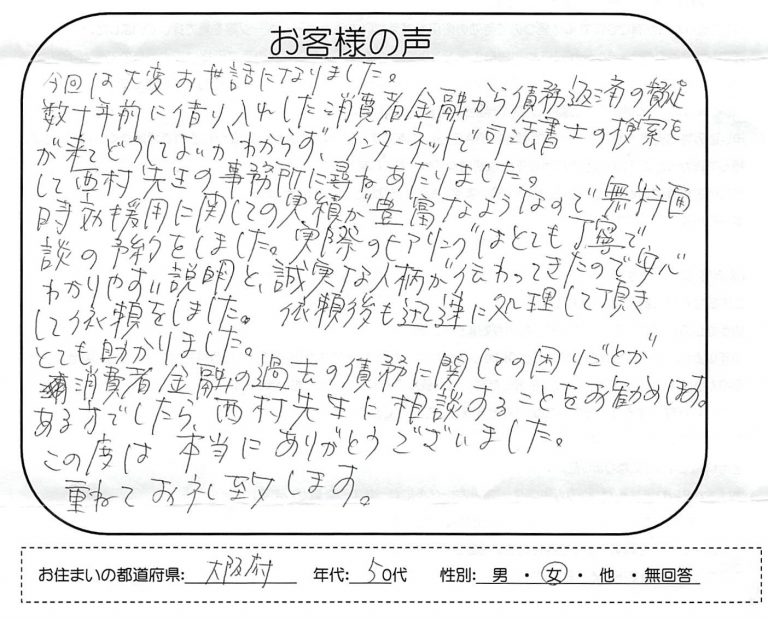 お客様の声
今回は大変お世話になりました。
数十年前に借り入れした消費者金融から債務返済の督促
が来てどうしてよいかわからず、インターネットで司法書士の検索を
して西村先生の事務所に尋ねあたりました。
時効援用に関しての実績が豊富なようなので無料面
談の予約をしました。実際のヒアリングはとても丁寧で、
わかりやすい説明と、誠実な人柄が伝わってきたので安心
して依頼をしました。 依頼後も迅速に処理して頂き
とても助かりました。
消費者金融の過去の債務に関しての困りごとが
ある方でしたら、西村先生に相談することをお勧めします。
この度は 本当にありがとうございました。
重ねてお礼致します。
お住まいの都道府県: 大阪府 年代: 50代 性別: 男 ・ 女 ・ 他 ・ 無回答